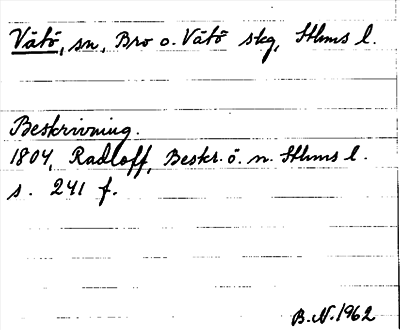 Vätö, sn, Bro o. Vätö skg, Sthms l.
Beskrivning.
1804, Radloff, Beskr. ö. n. Sthms l.
s. 241 f.
B.N. 1962